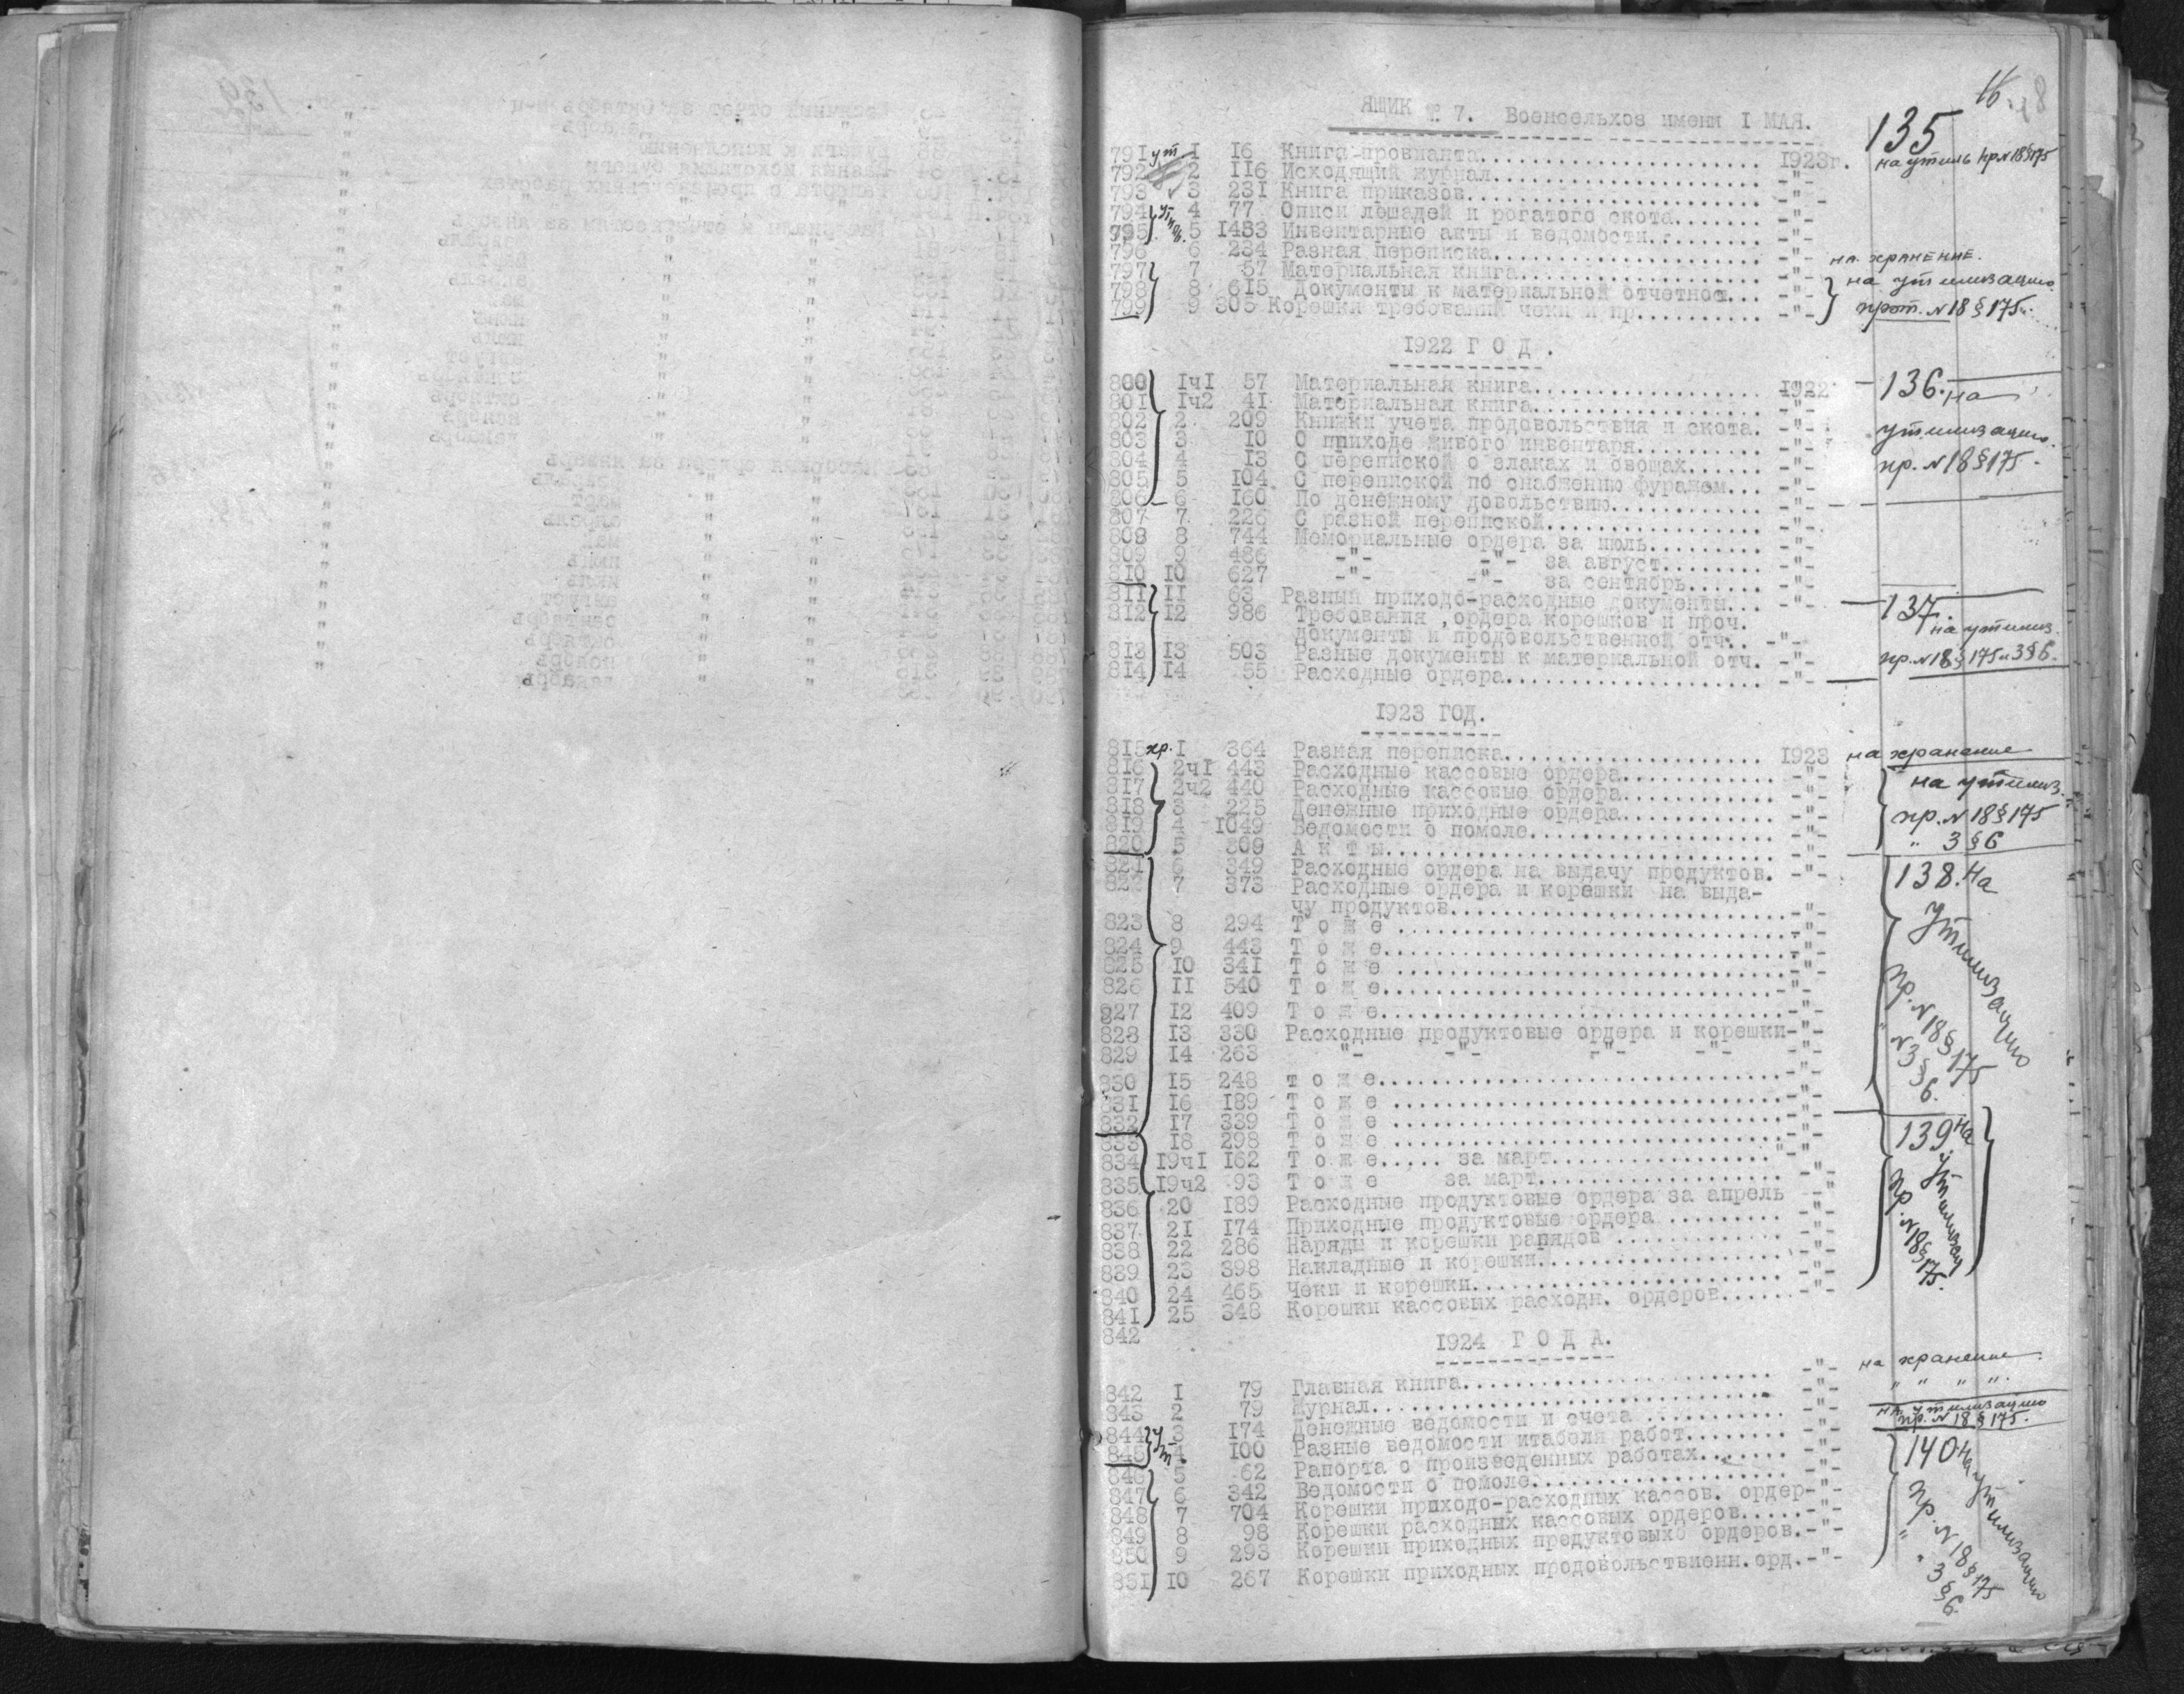 16 18
ЯЩИК № 7. Военсельхоз имени I МАЯ.
135
на утиль пр.N18§175
791 ут I 16 Книга провианта.......................... 1923г.
792 2 116 Исходящий журнал........................ -"-
793 3 231 Книга приказов.......................... -"-
794 4 77 Описи лошадей и рогатого скота....... -"-
795 5 1433 Инвентарные акты и ведомости......... -"-
796 6 234 Разная переписка........................ -"- на хранение.
797 7 57 Материальная книга...................... -"- на утилизацию
798 8 615 Документы к материальной отчетност... -"-
799 9 305 Корешки требований чеки и пр.......... -"- прот. N18 §175
1922 Г О Д .
800 Iч1 57 Материальная книга..................... 1922 136. на
801 Iч2 41 Материальная книга..................... -"-
802 2 209 Книжки учета продовольствия и скота. -"- утилизацию.
803 3 10 О приходе живого инвентаря........... -"-
804 4 13 С перепиской о злаках и овощах...... -"- пр. N18§175.
805 5 104 С перепиской по снабжению фуражем... -"-
806 6 160 По денежному довольствию............ -"-
807 7 226 С разной перепиской.................... -"-
809 8 744 Мемориальные ордера за июль......... -"-
809 9 486 -"- -"- за август........ -"-
810 10 627 -"- -"- за сентябрь...... -"-
811 11 63 Разный приходо-расходные документы... -"- 137.
812 12 986 Требования ,ордера корешков и проч. на утилиз.
документы и продовольственной отч.. -"-
813 13 503 Разные документы к материальной отч. -"- пр.N18§175и3§6.
814 14 55 Расходные ордера....................... -"-
1923 ГОД.
815 хр. I 364 Разная переписка.................... 1923 на хранение
816 2ч1 443 Расходные кассовые ордера............ -"- на утилиз.
817 2ч2 440 Расходные кассовые ордера............ -"-
818 3 225 Денежные приходные ордера............ -"- пр.N18§175
819 4 1049 Ведомости о помоле.................... -"- " 3§6
820 5 309 А к т ы................................. -"-
821 6 349 Расходные ордера на выдачу продуктов. -"- 138. На
822 7 373 Расходные ордера и корешки на выда-
чу продуктов............................ -"- утилизацию
823 8 294 Т о ж е ............................... -"-
824 9 443 Т о ж е................................ -"-
825 10 341 Т о ж е ............................... -"- пр. N18§175
826 11 540 Т о ж е................................ -"- " N3§6.
827 12 409 Т о ж е................................ -"-
828 13 330 Расходные продуктовые ордера и корешки-"-
829 14 263 "- -"- -"- -"- -"-
830 15 248 т о ж е................................ -"-
831 16 189 Т о ж е ............................... -"-
832 17 339 Т о ж е ............................... -"-
833 18 298 Т о ж е ............................... -"- 139 на
834 19ч1 162 Т о ж е..... за март................. "-"- утилизац
835 19ч2 93 Т о ж е за март................... -"- пр. N18§175.
836 20 189 Расходные продуктовые ордера за апрель -"
837 21 174 Приходные продуктовые ордера ......... -"-
838 22 286 Наряды и корешки рапядов ............. -"-
839 23 398 Накладные и корешки................... -"-
840 24 465 Чеки и корешки......................... -"-
841 25 348 Корешки кассовых расходн. ордеров...... -"-
842
1924 Г О Д А.
842 I 79 Главная книга......................... -"- на хранение
843 2 79 Журнал................................ -"- " " " ".
844 3 174 Денежные ведомости и счета ........... -"- на утилизацию
845 ут. 4 100 Разные ведомости итабеля работ........ -"- пр. N18§175.
846 5 62 Рапорта о произведенных работах....... -"- 140 На утилизацию
847 6 342 Ведомости о помоле.................... -"-
848 7 704 Корешки приходо-расходных кассов. ордер-"- пр. N18§175
849 8 98 Корешки расходных кассовых ордеров.....-"- " " 3§6.
850 9 293 Корешки приходных продуктовых ордеров.-"-
851 10 267 Корешки приходных продовольствиенн.орд.-"-